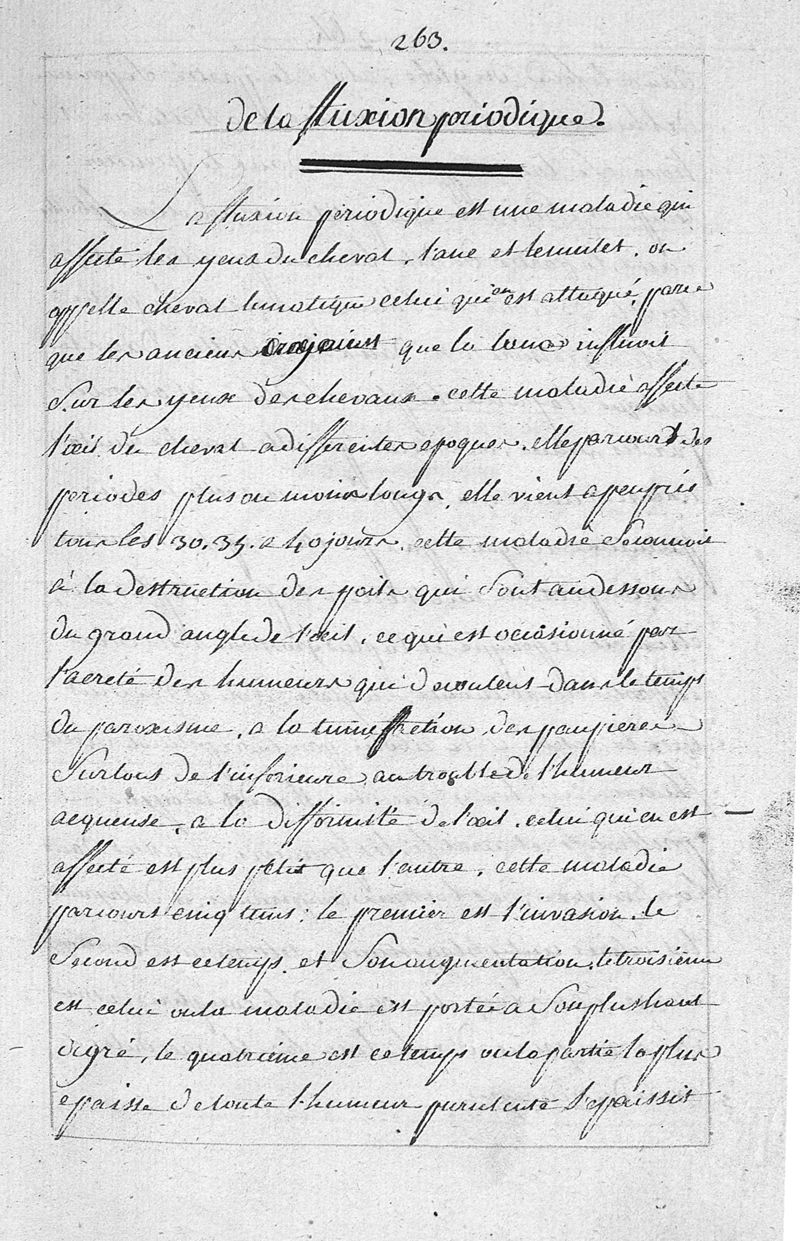 263.
de la fluxion periodique.
La fluxion periodique est une maladie qui
affecte les yeux du cheval, l'ane et le mulet. on
appelle cheval lunatique celui qui en est attaqué, parce
que les anciens croyoient que la lune influoit
sur les yeux des chevaux. cette maladie affecte
l'œil du cheval a differentes epoques. elle parcourt des
periodes plus ou moins longs, elle vient apeuprès
tous les 30. 35. a 40 jours. cette maladie se connoit
à la destruction des poils qui sont audessous
du grand angle de l'œil, ce qui est occasionné par
l'acreté des humeurs qui decoulent dans le temps
du paroxisme, a la tumefaction des paupieres
surtous de l'inferieure, au trouble de l'humeur
acqueuse, a la difformité de l'œil. celui qui en est
affecté est plus petit que l'autre. cette maladie
parcours cinq tems: le premier est l'invasion. le
second est ce temps et son augmentation, le troisieme
est celui ou la maladie est portée a son plus haut
digré, le quatrieme est ce temps ou la partie la plus
epaisse de toute l'humeur purulente s'epaissit